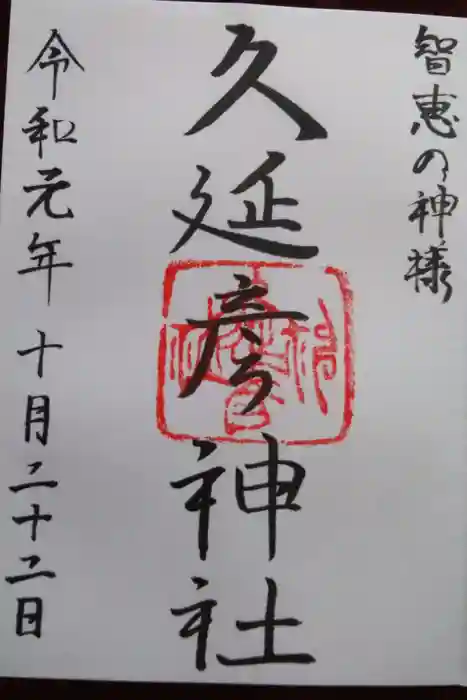 智恵の神様
久延彦神社
令和元年 十月二十二日